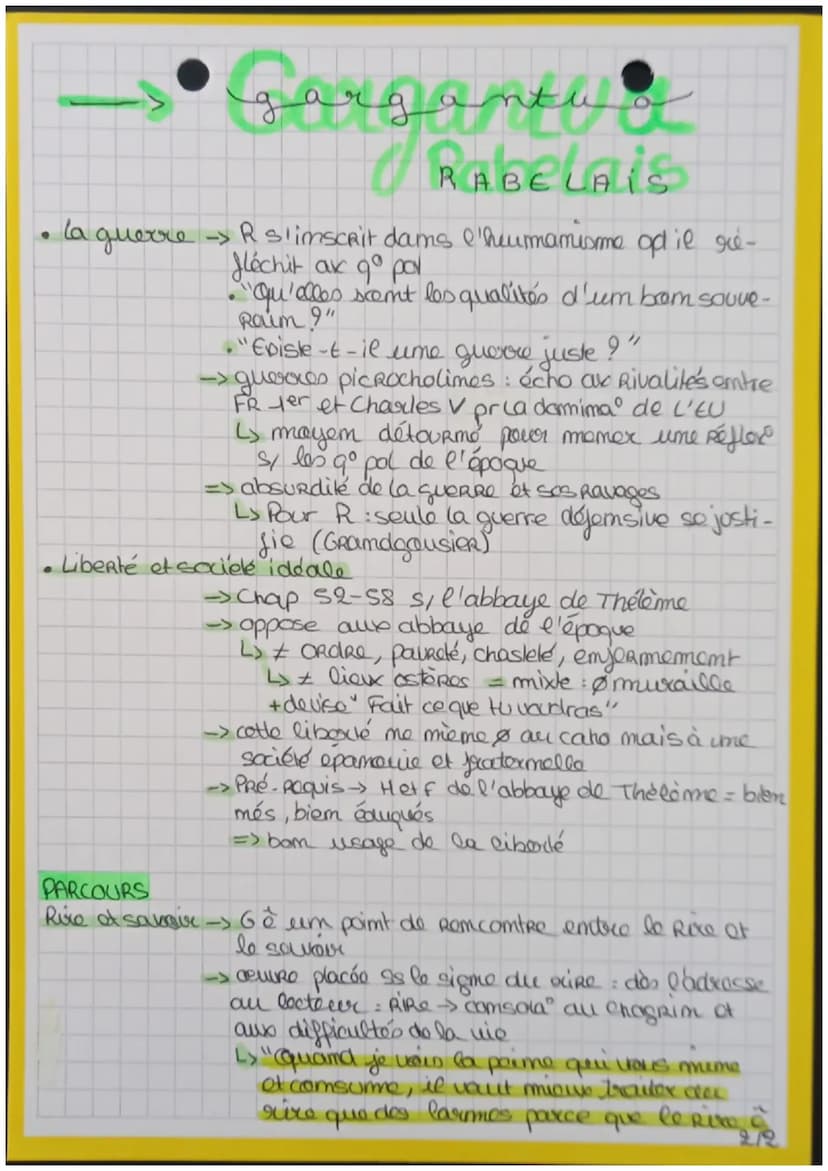 Gargantua
gargantua
Rabelais
RABELAIS
• La guerre → R s'inscrit dans l'humanisme où il ré-
fléchit ax q° pol
• "Qu'elles sont les qualités d'un bon souve-
rain ?"
• "Existe-t-il une guerre juste ?"
→ guerres picrocholines : écho ax Rivalités entre
FR 1er et Charles V pr la domina° de L'EU
↳ moyen détourné pour mener une réflex°
s/ les q° pol de l'époque
=> absurdité de la guerre et ses ravages
↳ Pour R : seule la guerre défensive se justi-
fie (Grandgousier)
• Liberté et société idéale
→ Chap 52-58 s/ l'abbaye de Thélème
→ oppose aux abbaye de l'époque
↳ ≠ ordre, pauvreté, chasteté, enfermement
↳ ≠ lieux ostères = mixte : ø muraille
+ devise "Fait ce que tu voudras"
→ cette liberté ne mène ø au caho mais à une
société épanouie et fraternelle
→ Pré-requis → H et F de l'abbaye de Thélème = bien
nés, bien éduqués
=> bon usage de la liberté
PARCOURS
Rire et savoir → G ê un point de rencontre entre le Rire et
le savoir
→ oeuvre placée ss le signe du rire : dès l'adresse
au lecteur : RIRE → consola° au chagrin et
aux difficultés de la vie
↳ "Quand je vois la peine qui vous mine
et consume, il vaut mieux traiter du
rire que des larmes parce que le rire ê
2/2